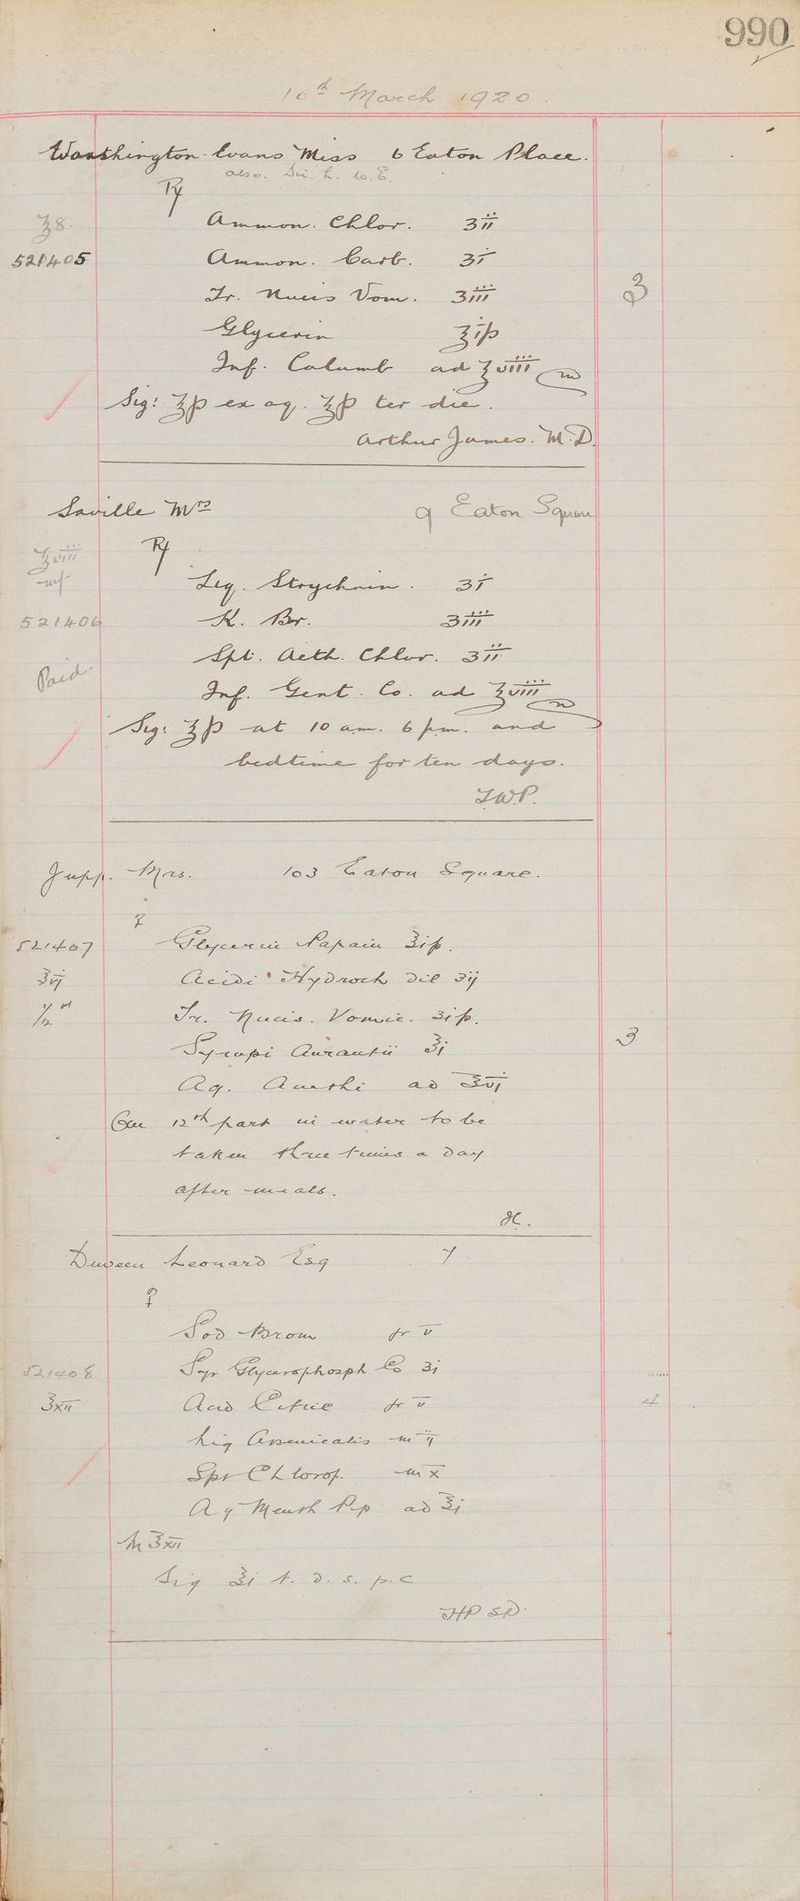 990
10th March 1920.
Worthington-Evans Miss 6 Eaton Place.
also. Sir. L. W. E.
℞
℥8. Ammon. Chlor. ʒii
521405 Ammon. Carb. ʒi
Tr. Nucis Vom. ʒiii 3
Glycerin ℥iß
Inf. Calumb ad ℥viii m
Sig: ℥ß ex aq. ℥ß ter die.
Arthur James. M.D.
Saville Mrs 9 Eaton Square
℥viii ℞
Liq. Strychnin. ʒi
521406 K. Br. ʒiii
Spt. Aeth. Chlor. ʒii
Paid. Inf. Gent. Co. ad ℥viii m
Sig: ℥ß at 10 am. 6 pm. and
bedtime for ten days.
Jupp. Mrs. 103 Eaton Square.
521407 Glycerin Papain ℥iß.
℥vj Acidi Hydroch dil ʒij
1/12th Tr. Nucis. Vomic. ʒiß.
Syrupi Aurantii ℥j 3
Aq. Anethi ad ℥vj
One 12th part in water to be
taken three times a day
after meals.
H.
Duveen Leonard Esq 7
Sod Brom gr v
521408 Syr Glycerophosph Co ʒi
℥xii Acid Citric gr v 4
Liq Arsenicalis m ij
Spt Chlorof. m x
Aq Menth Pip ad ℥j
M ℥xii
Sig ℥i t. d. s. p. c
HPSD.